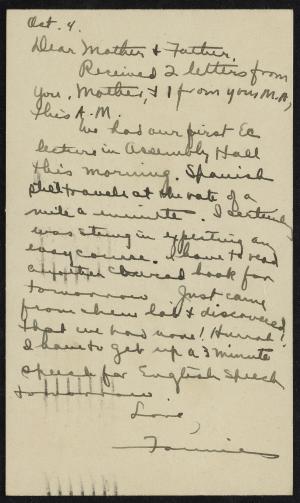 Oct. 4.
Dear Mother & Father,
Received 2 letters from
you, Mother, & 1 from you M.A,
this A.M.
We had our first Ec
lecture in Assembly Hall
this morning. Spanish
still travels at the rate of a
mile a minute. I certainly
was stung in expecting an
easy course. I have to read
a book for
tomorrow. Just came
from chem lab & discovered
that we had none! Hurrah!
I have to get up a 3 minute
speech for English speech
tomorrow.
Love,
Fannie